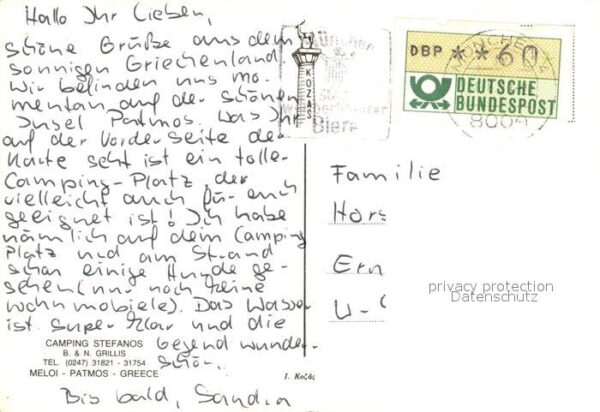 Hallo Ihr Lieben,
schöne Grüße aus dem
sonnigen Griechenland
Wir befinden uns mo-
mentan auf der schönen
Insel Patmos. Was Ihr
auf der Vorderseite der
Karte seht ist ein toller
Camping-Platz, der
vielleicht auch für euch
geeignet ist! Ich habe
nämlich auf dem Camping
Platz und am Strand
schon einige Hunde ge-
sehen (nur noch keine
wohnmobile). Das Wasser
ist super klar und die
Gegend wunder-
schön.
Bis bald, Sandra
CAMPING STEFANOS
B. & N. GRILLIS
TEL. (0247) 31821 - 31754
MELOI - PATMOS - GREECE
KOZAS
I. Κοζάς
München
Biere
DBP **60*
DEUTSCHE
BUNDESPOST
MÜNCHEN
8000
Familie
Hors
Ern
privacy protection
Datenschutz